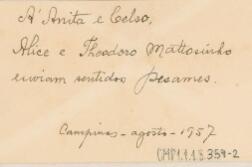 A' Anita e Celso,
Alice e Theodoro Mattosinho
enviam sentidos pesames.
Campinas - agosto - 1957
359-2